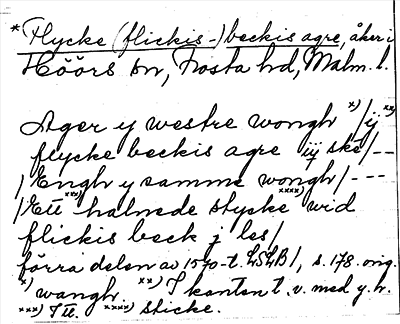 *Flycke (flickis-) beckis agre, åker i
Höörs sn, Frosta hd, Malm. l.
Ager y westre wongh x) /ij xx)
flycke beckis agre iij ske/--
/Engh y samme wongh/---
/Ett xxx) halmede stycke xxxx) wid
flickis beck j les/
förra delen av 1570-t. LSLB/, s. 178. orig.
x) wangh. xx) I kanten t. v. med y. h.
xxx) I tt. xxxx) sticke.